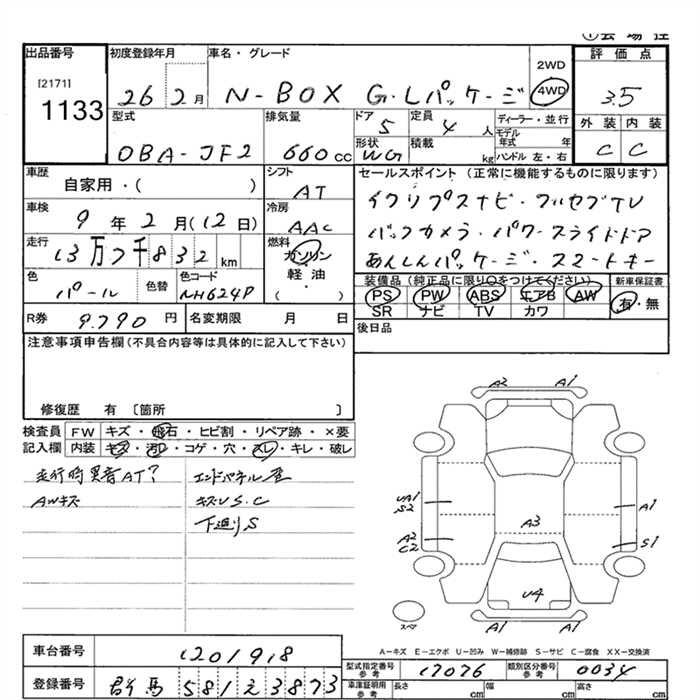 ①会場控
出品番号 初度登録年月 車名・グレード 評価点
[2171] 1133
26 2月 N-BOX G・Lパッケージ 2WD 4WD 3.5
型式 排気量 ドア 定員 ディーラー・並行 外装 内装
DBA-JF2 660cc 5 4人 モデル年式 年 C C
形状 WG 積載 kg ハンドル 左・右
車歴 自家用・( ) シフト AT
セールスポイント (正常に機能するものに限ります)
イクリプスナビ・フルセグTV
車検 9年2月(12日) 冷房 AAC
バックカメラ・パワースライドドア
走行 13万2千832km 燃料 ガソリン 軽油・( )
あんしんパッケージ・スマートキー
色 パール 色替 色コード NH624P
装備品(純正品に限り○をつけてください) 新車保証書
PS PW ABS エアB AW 有・無
SR ナビ TV カワ
R券 9.790円 名変期限 月 日
後日品
注意事項申告欄(不具合内容等は具体的に記入して下さい)
修復歴 有 〔箇所 〕
検査員 FW キズ・飛石・ヒビ割・リペア跡・×要
記入欄 内装 キズ・汚レ・コゲ・穴・スレ・キレ・破レ
走行時異音AT? エンドパネル歪
AWキズ キズUS.C
下廻りS
A2 A1
UA1 S2 A1
A3
A2 C2 S1
U4
スペア A1 A1
A-キズ E-エクボ U-凹み W-補修跡 S-サビ C-腐食 XX-交換済
車台番号 1201918
型式指定番号 参考 17076 類別区分番号 参考 0034
登録番号 群馬 581 2 3873
車庫証明用 参考 長さ cm 幅 cm 高さ cm